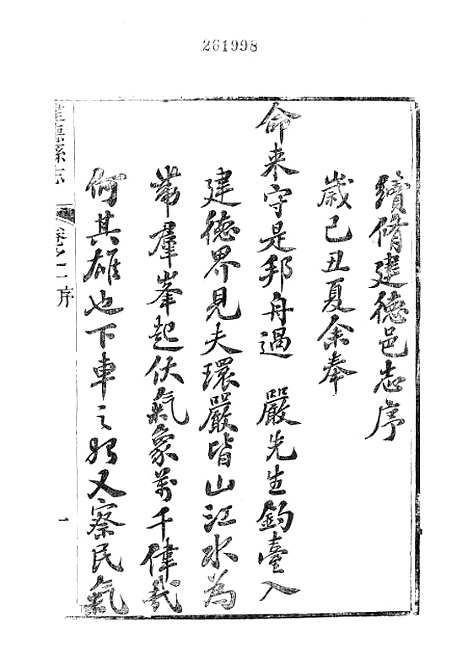 261998
續脩建德邑志序
歲己丑夏余奉
命来守是邦舟過 嚴先生釣臺入
建德界見夫環嚴皆山江水為
帶羣峯起伏氣象萬千偉哉
何其雄也下車之始又察民氣
建德縣志 卷之一序 一